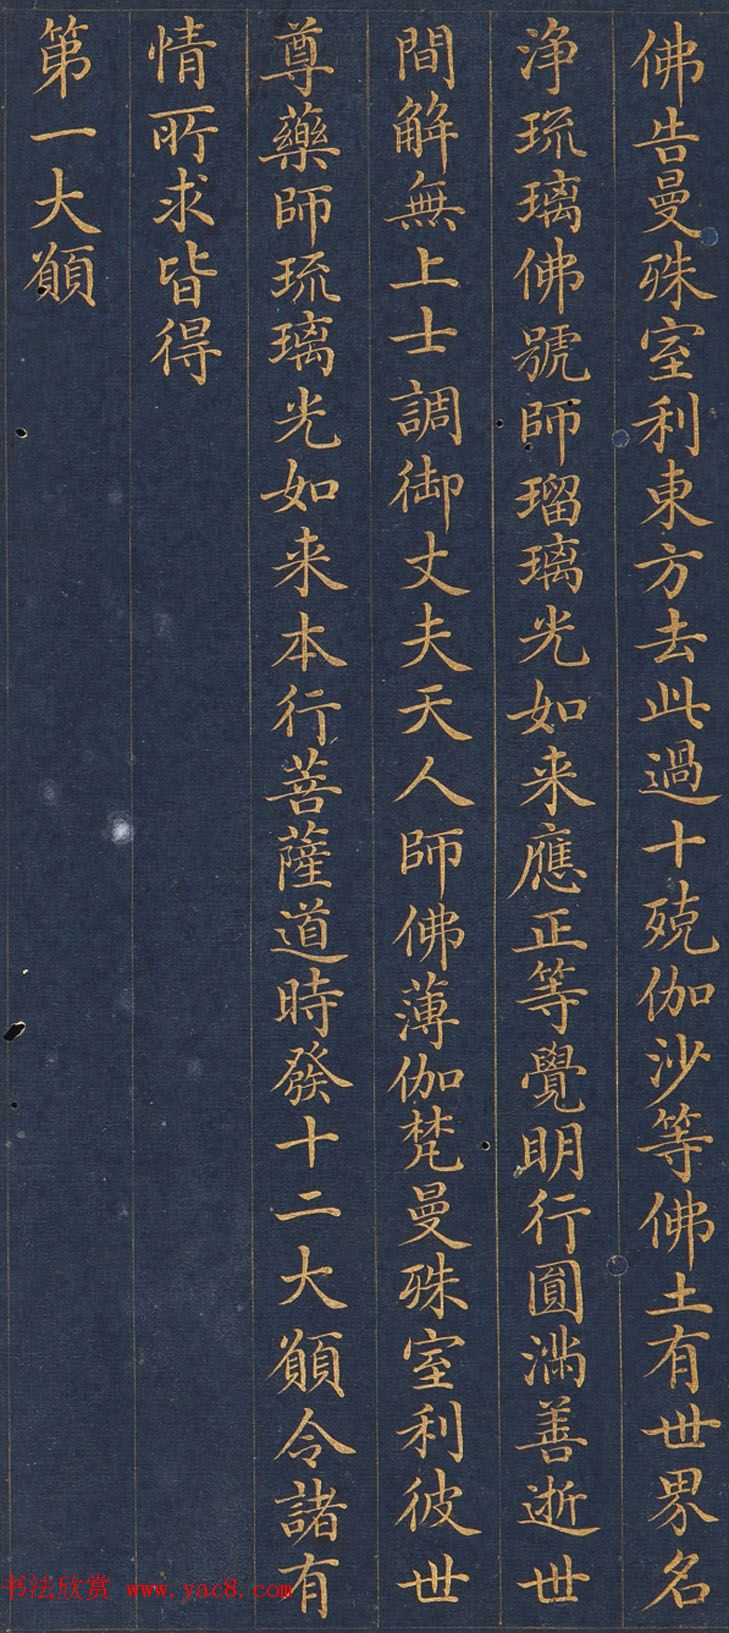 佛告曼殊室利東方去此過十殑伽沙等佛土有世界名
淨琉璃佛號師瑠璃光如来應正等覺明行圓滿善逝世
間解無上士調御丈夫天人師佛薄伽梵曼殊室利彼世
尊藥師琉璃光如来本行菩薩道時發十二大願令諸有
情所求皆得
第一大願
书法欣赏 www.yac8.com